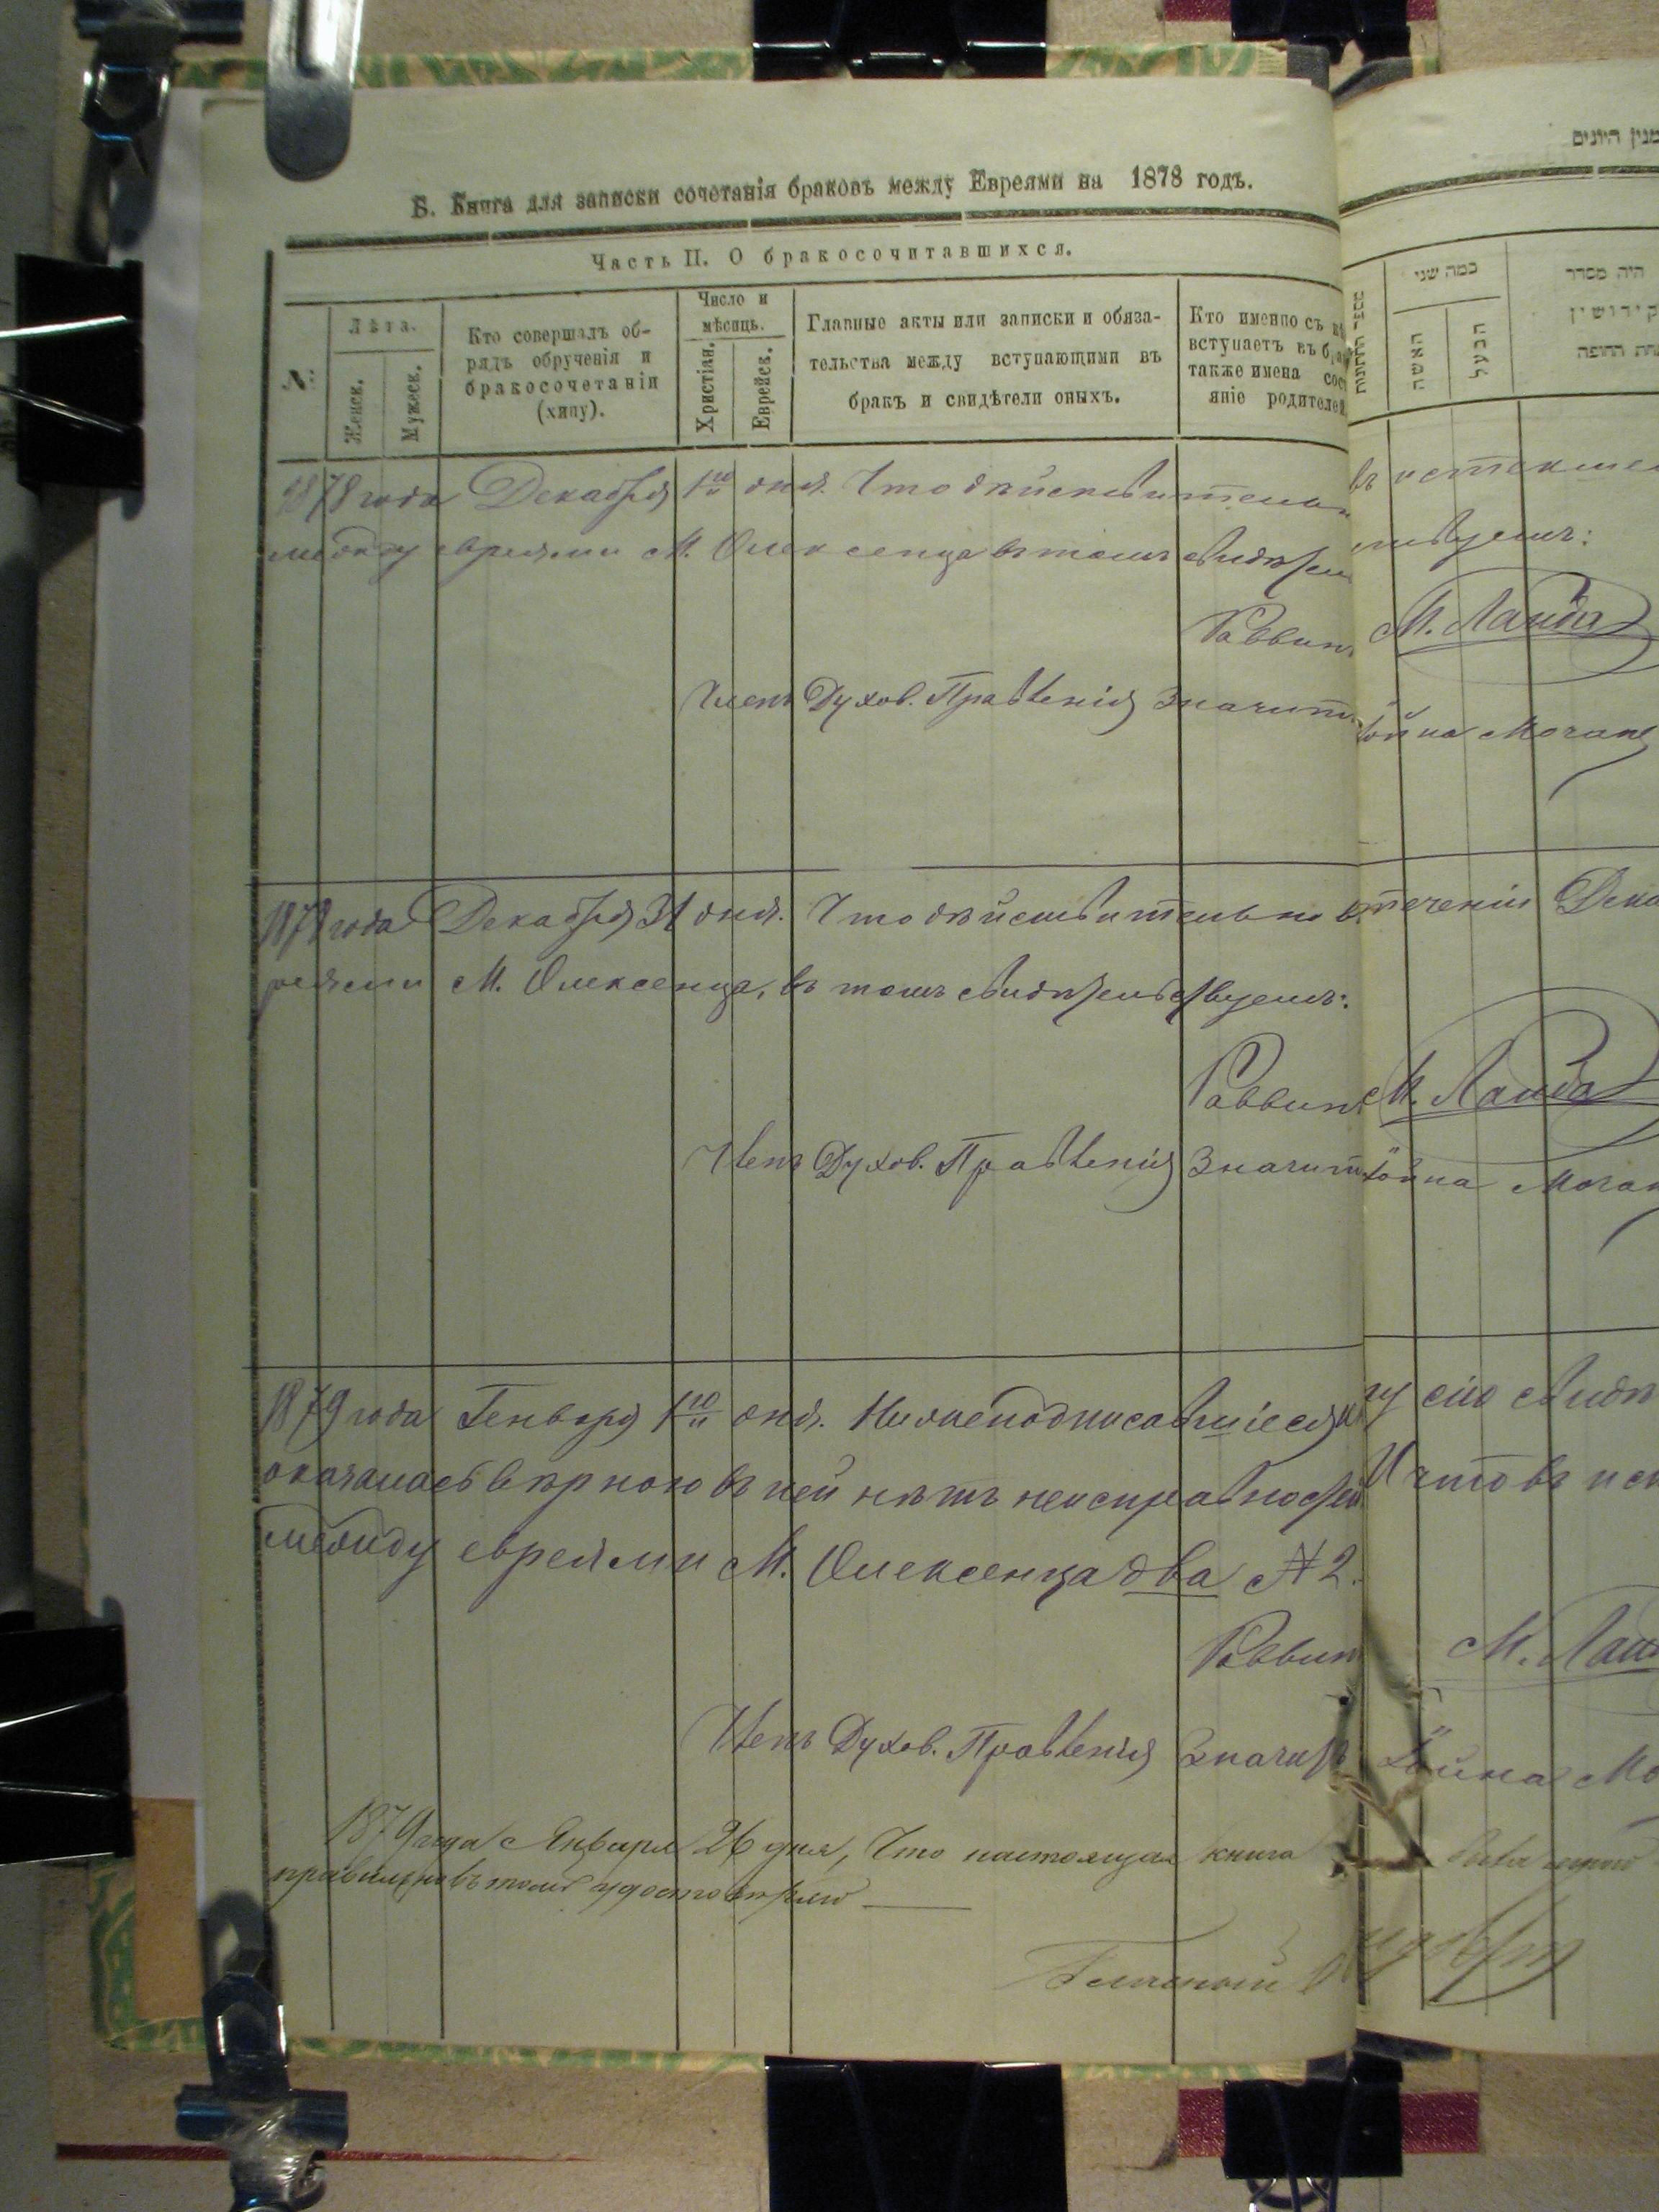 Б. Книга для записки сочетанія браковъ между Евреями на 1878 годъ.
Часть II. О бракосочитавшихся.
№:
Лѣта.
Женск.
Мужеск.
Кто совершалъ об-
рядъ обрученія и
бракосочетанія
(хипу).
Число и
мѣсяцъ.
Христіан.
Еврейск.
Главные акты или записки и обяза-
тельства между вступающими въ
бракъ и свидѣтели оныхъ.
Кто именно съ
вступаетъ въ
также имена
яніе родителей
מנין היונים
כמה שני
האשה
הבעל
היה מסדר
קידושין
תחת החופה
1878 года Декабря 1го дня. Что дѣйствительн въ истекшем
между евреями М. Олексенца въ томъ свидѣтель
Раввинъ М. Ланда
Членъ Духов. Правленія Значитъ
1878 года Декабря 31 дня. Что дѣйствительно въ теченіи Дека
реями М. Олексенца, въ томъ свидѣтельствуемъ:
Раввинъ М. Ланда
Членъ Духов. Правленія Значитъ
1879 года Генваря 1го дня. Нижеподписавшіеся сію свидѣ
оказалась вѣрною въ ней нѣтъ неисправностей И что въ
между евреями М. Олексенца два № 2.
Раввинъ М. Ланд
Членъ Духов. Правленія Значитъ
1879 года Января 26 дня, Что настоящая книга
правильна въ томъ удостовѣряю